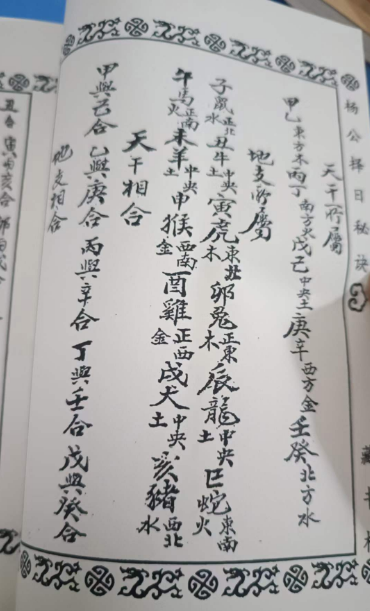 楊公擇日秘訣
天干所屬
甲乙東方木丙丁南方火戊己中央土庚辛西方金壬癸北方水
地支所屬
子鼠正北水丑牛中央土寅虎東北木卯兔正東木辰龍中央土巳蛇東南火
午馬正南火未羊中央土申猴西南金酉雞正西金戌犬中央土亥豬西北水
天干相合
甲與己合乙與庚合丙與辛合丁與壬合戊與癸合
地支相合